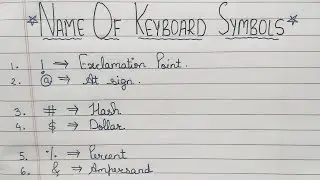 ☆ NAME OF KEYBOARD SYMBOLS ☆
1. ! ⇒ Exclamation Point.
2. @ ⇒ At sign.
3. # ⇒ Hash
4. $ ⇒ Dollar
5. % ⇒ Percent
6. & ⇒ Ampersand